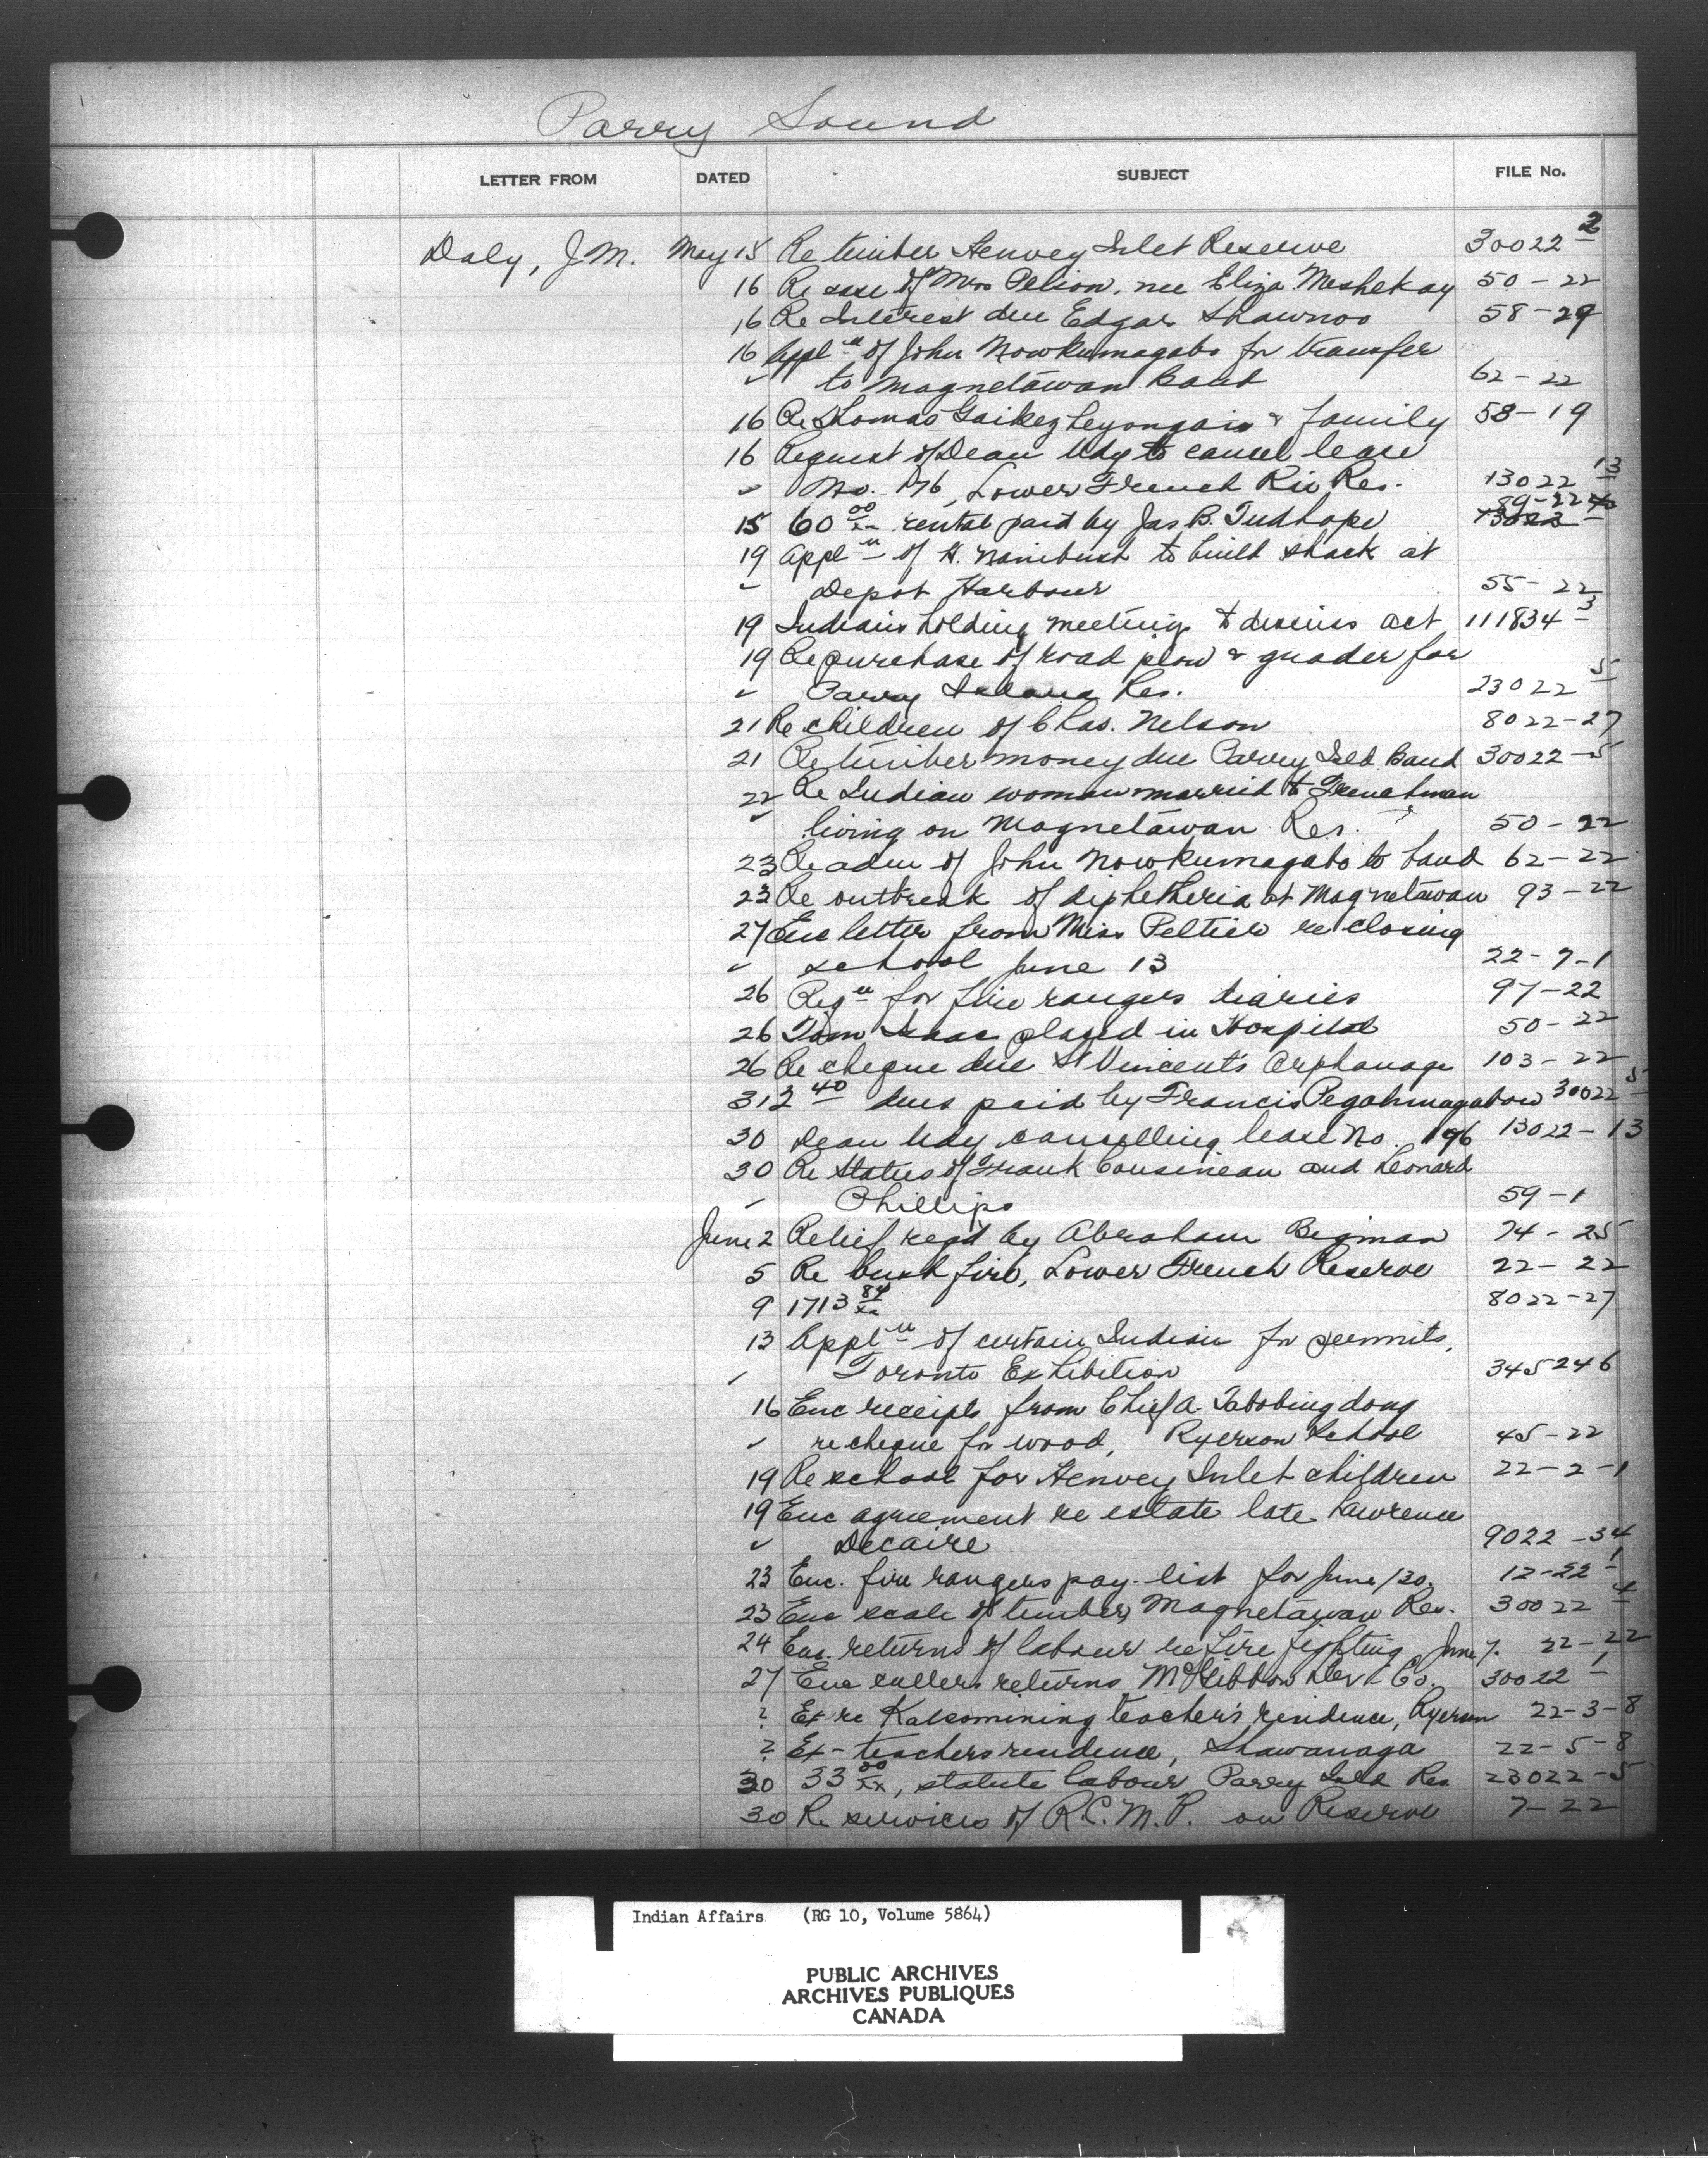 Parry Sound
LETTER FROM DATED SUBJECT FILE No.
Daly, J.M. May 15 Re timber Henvey Inlet Reserve 30022-2
16 Re case of Mrs Pelion, nee Eliza Meshekay 50-22
16 Re Interest due Edgar Shawnoo 58-29
16 Appln of John Nowkumagabo for transfer
" to Magnetawan Band 62-22
16 Re Thomas & family 58-19
16 Request of Dean Udy to cancel lease
" No. 196, Lower French Riv Res. 13022-13
15 60 00/xx rental paid by Jas B. Tudhope 89-22
19 Appln of H. Nanibush to build shack at
" Depot Harbour 55-22
19 Indians holding meetings to discuss act 111834-3
19 Re purchase of road plow & grader for
" Parry Island Res. 23022-5
21 Re children of Chas. Nelson 8022-27
21 Re timber money due Parry Isld Band 30022-5
22 Re Indian woman married to Frenchman
" living on Magnetawan Res. 50-22
23 Re adm of John Nowkumagabo to band 62-22
23 Re outbreak of diphetheria at Magnetawan 93-22
27 Enc letter from Miss Peltier re closing
" school June 13 22-7-1
26 Reqn for fire rangers diaries 97-22
26 Tom Isaac placed in Hospital 50-22
26 Re cheque due St Vincent's Orphanage 103-22
31 2 40 dues paid by Francis Pegahmagabow 30022-5
30 Dean Udy cancelling lease No. 196 13022-13
30 Re Status of Frank Cousineau and Leonard
" Phillips 59-1
June 2 Relief reqd by Abraham Bigman 74-25
5 Re bush fire, Lower French Reserve 22-22
9 1713 84/xx 8022-27
13 Appln of certain Indian for permits,
" Toronto Exhibition 345246
16 Enc receipts from Chief A. Tabobingdong
" re cheque for wood, Ryerson School 45-22
19 Re school for Henvey Inlet children 22-2-1
19 Enc agreement re estate late Lawrence
" Decaire 9022-34
23 Enc. fire rangers pay-list for June/30. 12-22-1
23 Enc scale of timber, Magnetawan Res. 30022-4
24 Enc. returns of labour re Fire Fighting June 7. 22-22
27 Enc cullers returns McGibbon Dev Co. 30022-1
? Ex re Kalsomining teacher's residence, Ryerson 22-3-8
? Ex-teachers residence, Shawanaga 22-5-8
30 33 00/xx, statute labour Parry Isld Res 23022-5
30 Re services of R.C.M.P. on Reserve 7-22
Indian Affairs (RG 10, Volume 5864)
PUBLIC ARCHIVES
ARCHIVES PUBLIQUES
CANADA